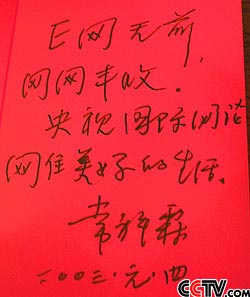 E网无前,
网网丰收.
央视国际网络
网住美好的生活。
常祥霖
二〇〇三.元.四
CCTV.com